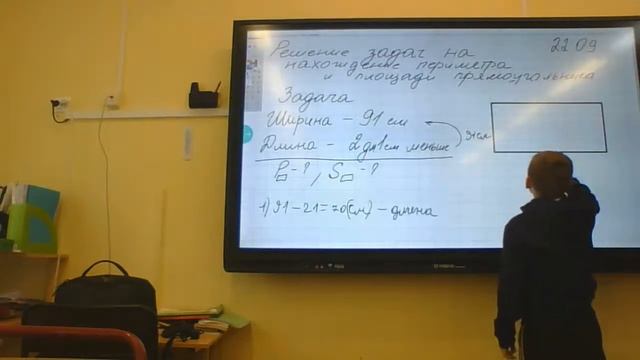 Решение задач на 22 09
нахождение периметра
и площади прямоугольника
Задача
Ширина – 91 см
Длина – 2 дм 1 см меньше
P▭ - ? , S▭ - ?
1) 91 – 21 = 70 (см) – длина
91 см